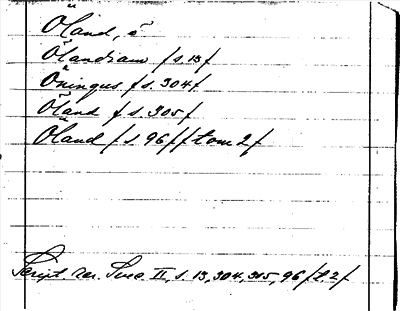 Öland, ö
Ölandiam f s. 13 f
Öningus f s. 304 f
Öland f s. 305 f
Öland f s. 96 f f tom 2 f
Script. rer. Svec. II, s. 13, 304, 305, 96 f t. 2 f